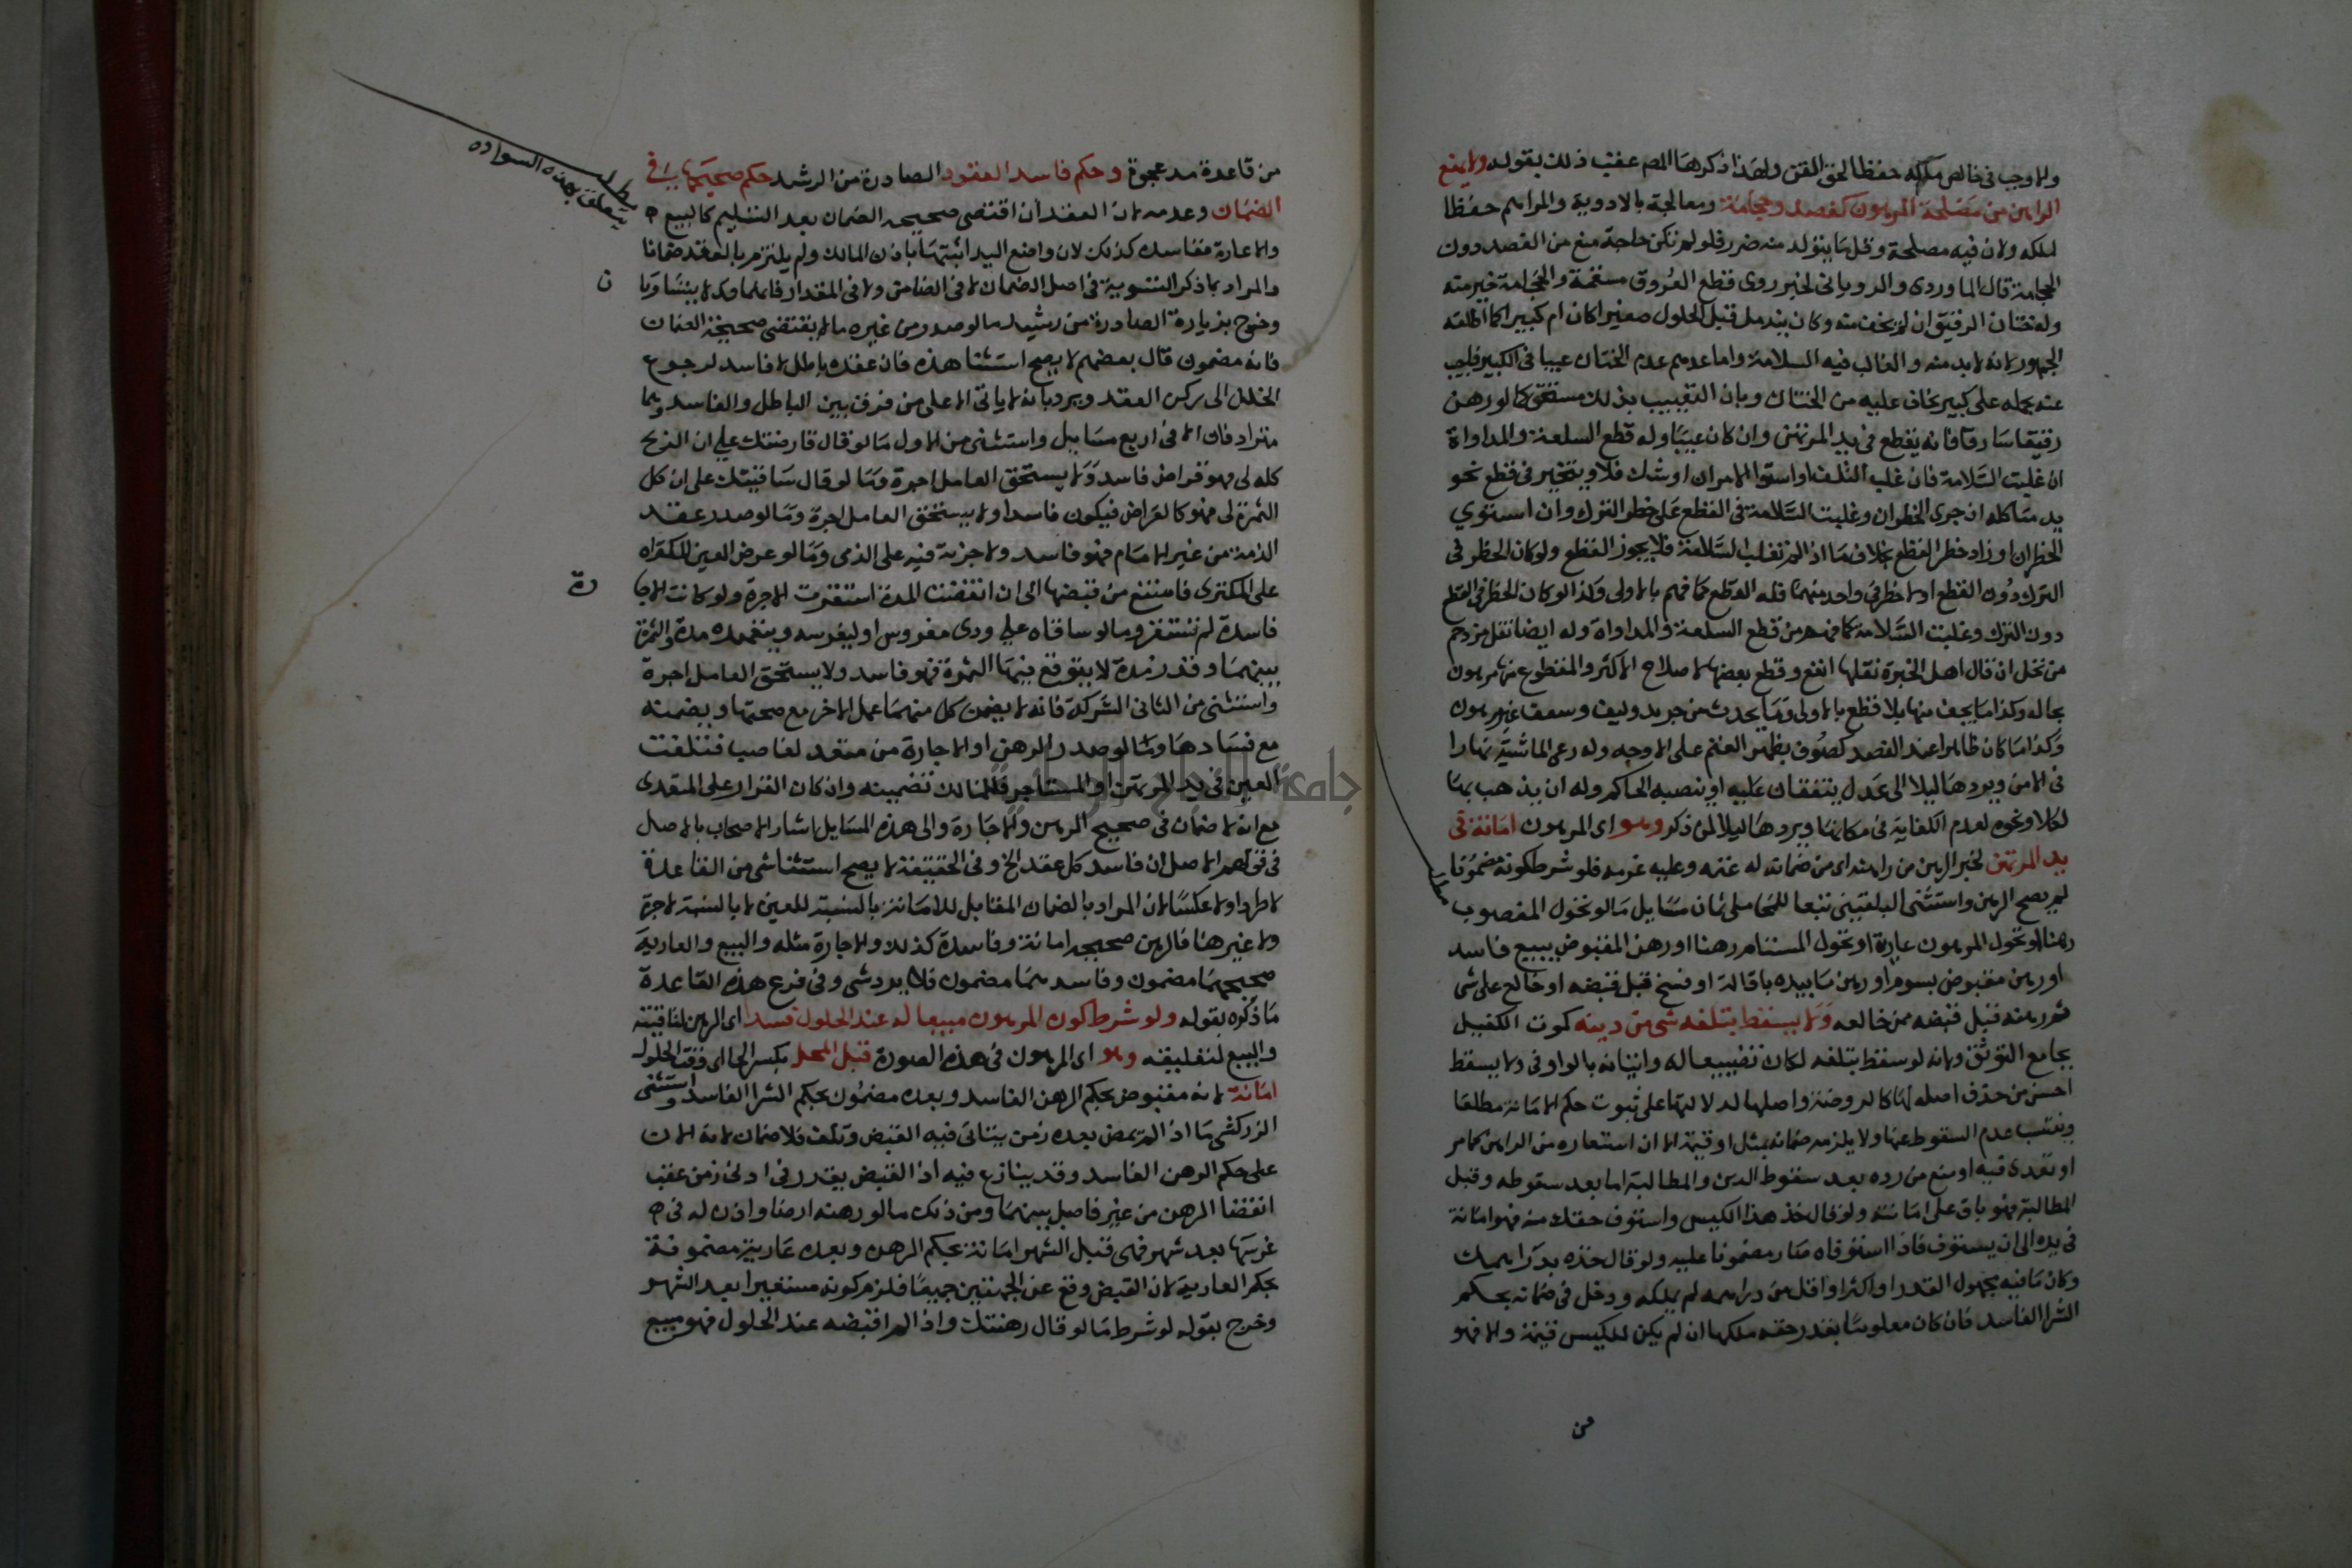 ولاوجب في خالص ملكه حفظا لحق القن ولهذا ذكرها المص عقب ذلك بقوله ولا يمنع
الراهن من مصلحة المرهون كفصد وحجامة ومعالجة بالادوية والمراهم حفظا
لملكه ولان فيه مصلحة وقل ما يتولد منه ضرر فلو لم تكن حاجة منع من الفصد دون
الحجامة قال الماوردى والرويانى لخبر روى قطع العروق مسقمة والحجامة خير منه
وله ختان الرقيق ان لم يخف منه وكان يندمل قبل الحلول صغيرا كان ام كبيرا كما اطلقه
الجمهور لانه لابد منه والغالب فيه السلامة واما عدهم عدم الختان عيبا فى الكبير فليجب
عنه بحمله على كبير يخاف عليه من الختان وبان التعييب بذلك مستحق كما لو رهن
رقيقا سارقا فانه يقطع فى يد المرتهن وان كان عيبا وله قطع السلعة والمداواة
ان غلبت السلامة فان غلب التلف او استوا الامران او شك فلا ويتخير فى قطع نحو
يد متاكلة ان جرى الخطران وغلبت السلامة فى القطع على خطر الترك وان استوي
الخطران او زاد خطر القطع بخلاف ما اذا لم تغلب السلامة فلا يجوز القطع ولو كان الخطر فى
الترك دون القطع او لا خطر فى واحد منهما فله القطع كما فهم بالاولى وكذا لو كان الخطر فى القطع
دون الترك وغلبت السلامة كما فهم من قطع السلعة والمداواة وله ايضا نقل مزدحم
من نخل ان قال اهل الخبرة نقلها انفع وقطع بعضها لاصلاح الاكثر والمقطوع منها مرهون
بحاله وكذا ما يجف منها بلا قطع بالاولى وما يحدث من جريد وليف وسعف غير مرهون
وكذا ما كان ظاهرا عند العقد كصوف بظهر الغنم على الاوجه وله رعى الماشية نهارا
فى الامن ويردها ليلا الى عدل يتفقان عليه او ينصبه الحاكم وله ان يذهب بها
لكلا ونحوه لعدم الكفاية فى مكانها ويردها ليلا لمن ذكر وهو اى المرهون امانة فى
يد المرتهن لخبر الرهن من راهنه اى من ضمانه له غنمه وعليه غرمه فلو شرط كونه مضمونا
لم يصح الرهن واستثنى البلقينى تبعا للمحاملى ثمان مسايل ما لو تحول المغصوب
رهنا او تحول المرهون عارية او تحول المستام رهنا او رهن المقبوض ببيع فاسد
او رهن مقبوض بسوم او رهن ما بيده باقالة او فسخ قبل قبضه او خالع على شى
ثم رهنه قبل قبضه ممن خالعه ولا يسقط بتلفه شى من دينه كموت الكفيل
بجامع التوثق ولانه لو سقط بتلفه لكان تضييعا له واتيانه بالواو فى ولا يسقط
احسن من حذف اصله لها كالروضة واصلها لدلالتها على ثبوت حكم الامانة مطلقا
عدم السقوط عنها ولا يلزمه ضمانه بمثل او قيمة الا ان استعاره من الراهن كما مر
او تعدى فيه او منع من رده بعد سقوط الدين والمطالبة اما بعد سقوطه وقبل
المطالبة فهو باق على امانته ولو قال خذ هذا الكيس واستوف حقك منه فهو امانة
فى يده الى ان يستوفى فاذا استوفاه صار مضمونا عليه ولو قال خذه بدراهمك
وكان ما فيه مجهول القدر او اكثر او اقل من دراهمه لم يملكه ودخل فى ضمانه بحكم
الشرا الفاسد فان كان معلوما بقدر حقه ملكها ان لم يكن للكيس قيمة والا فهو
من
من قاعدة مد عجوة وحكم فاسد العقود الصادرة من الرشد حكم صحيحها فى
الضمان وعدمه لان العقد ان اقتضى صحيحه الضمان بعد التسليم كالبيع
والاعارة ففاسده كذلك لان واضع اليد اثبتها باذن المالك ولم يلتزم بالعقد ضمانا
والمراد بما ذكر التسوية فى اصل الضمان لا فى الضامن ولا فى المقدار فانهما قد لا يتساويا
ن
وخرج بزيادة الصادرة من رشيد ما لو صدر من غيره ما لا يقتضى صحيحه الضمان
فانه مضمون قال بعضهم لا يصح استثنا هذه فان عقده باطل لا فاسد لرجوع
الخلل الى ركن العقد ويرد بانه لا ياتى الا على من فرق بين الباطل والفاسد وهما
مترادفان الا فى اربع مسايل واستثنى من الاول ما لو قال قارضتك على ان الربح
كله لى فهو قراض فاسد ولا يستحق العامل اجرة وما لو قال ساقيتك على ان كل
الثمرة لى فهو كالقراض فيكون فاسدا ولا يستحق العامل اجرة وما لو صدر عقد
الذمة من غير الامام فهو فاسد ولا جزية فيه على الذمى وما لو عرض العين المكتراه
على المكترى فامتنع من قبضها الى ان انقضت المدة استقرت الاجرة ولو كانت الاجا
رة
فاسدة لم تستقر وما لو ساقاه على ودى مغروس او ليغرسه ويتعهده مدة والثمرة
بينهما وقدر مدة لا يتوقع فيها الثمرة فهو فاسد ولا يستحق العامل اجرة
واستثنى من الثانى الشركة فانه لا يضمن كل منهما عمل الاخر مع صحتها ويضمنه
مع فسادها وما لو صدر الرهن او الاجارة من متعد لغاصب فتلفت
العين فى يد المرتهن او المستاجر فللمالك تضمينه وان كان القرار على المتعدى
مع انه لا ضمان فى صحيح الرهن والاجارة والى هذه المسايل اشار الاصحاب بالاصل
فى قولهم الاصل ان فاسد كل عقد الخ وفى الحقيقة لا يصح استثنا شى من القاعدة
لا طردا ولا عكسا لان المراد بالضمان المقابل للامانة بالنسبة للعين لا بالنسبة لاجرة
ولا غيرها فالرهن صحيحه امانة وفاسده كذلك والاجارة مثله والبيع والعارية
صحيحهما مضمون وفاسدهما مضمون فلا يرد شى وفى فرع هذه القاعدة
ما ذكره بقوله ولو شرط كون المرهون مبيعا له عند الحلول فسد اى الرهن لتاقيته
والبيع لتعليقه وهو اى المرهون فى هذه الصورة قبل المحل بكسر الحا اى وقت الحلول
امانة لانه مقبوض بحكم الرهن الفاسد وبعده مضمون بحكم الشرا الفاسد واستثنى
الزركشى ما اذا لم يمض بعده زمن يتاتى فيه القبض وتلف فلا ضمان لانه الان
على حكم الرهن الفاسد وقد ينازع فيه اذ القبض يقدر فى ادنى زمن عقب
انقضا الرهن من غير فاصل بينهما ومن ذلك ما لو رهنه ارضا واذن له فى
غرسها بعد شهر فهى قبل الشهر امانة بحكم الرهن وبعده عارية مضمونة
بحكم العارية لان القبض وقع عن الجهتين جميعا فلزم كونه مستعيرا بعد الشهر
وخرج بقوله لو شرط ما لو قال رهنتك واذا لم اقبضه عند الحلول فهو مبيع
مطلب
يتعلق بهذه السواده
مطلب
جامعة النجاح الوطنية